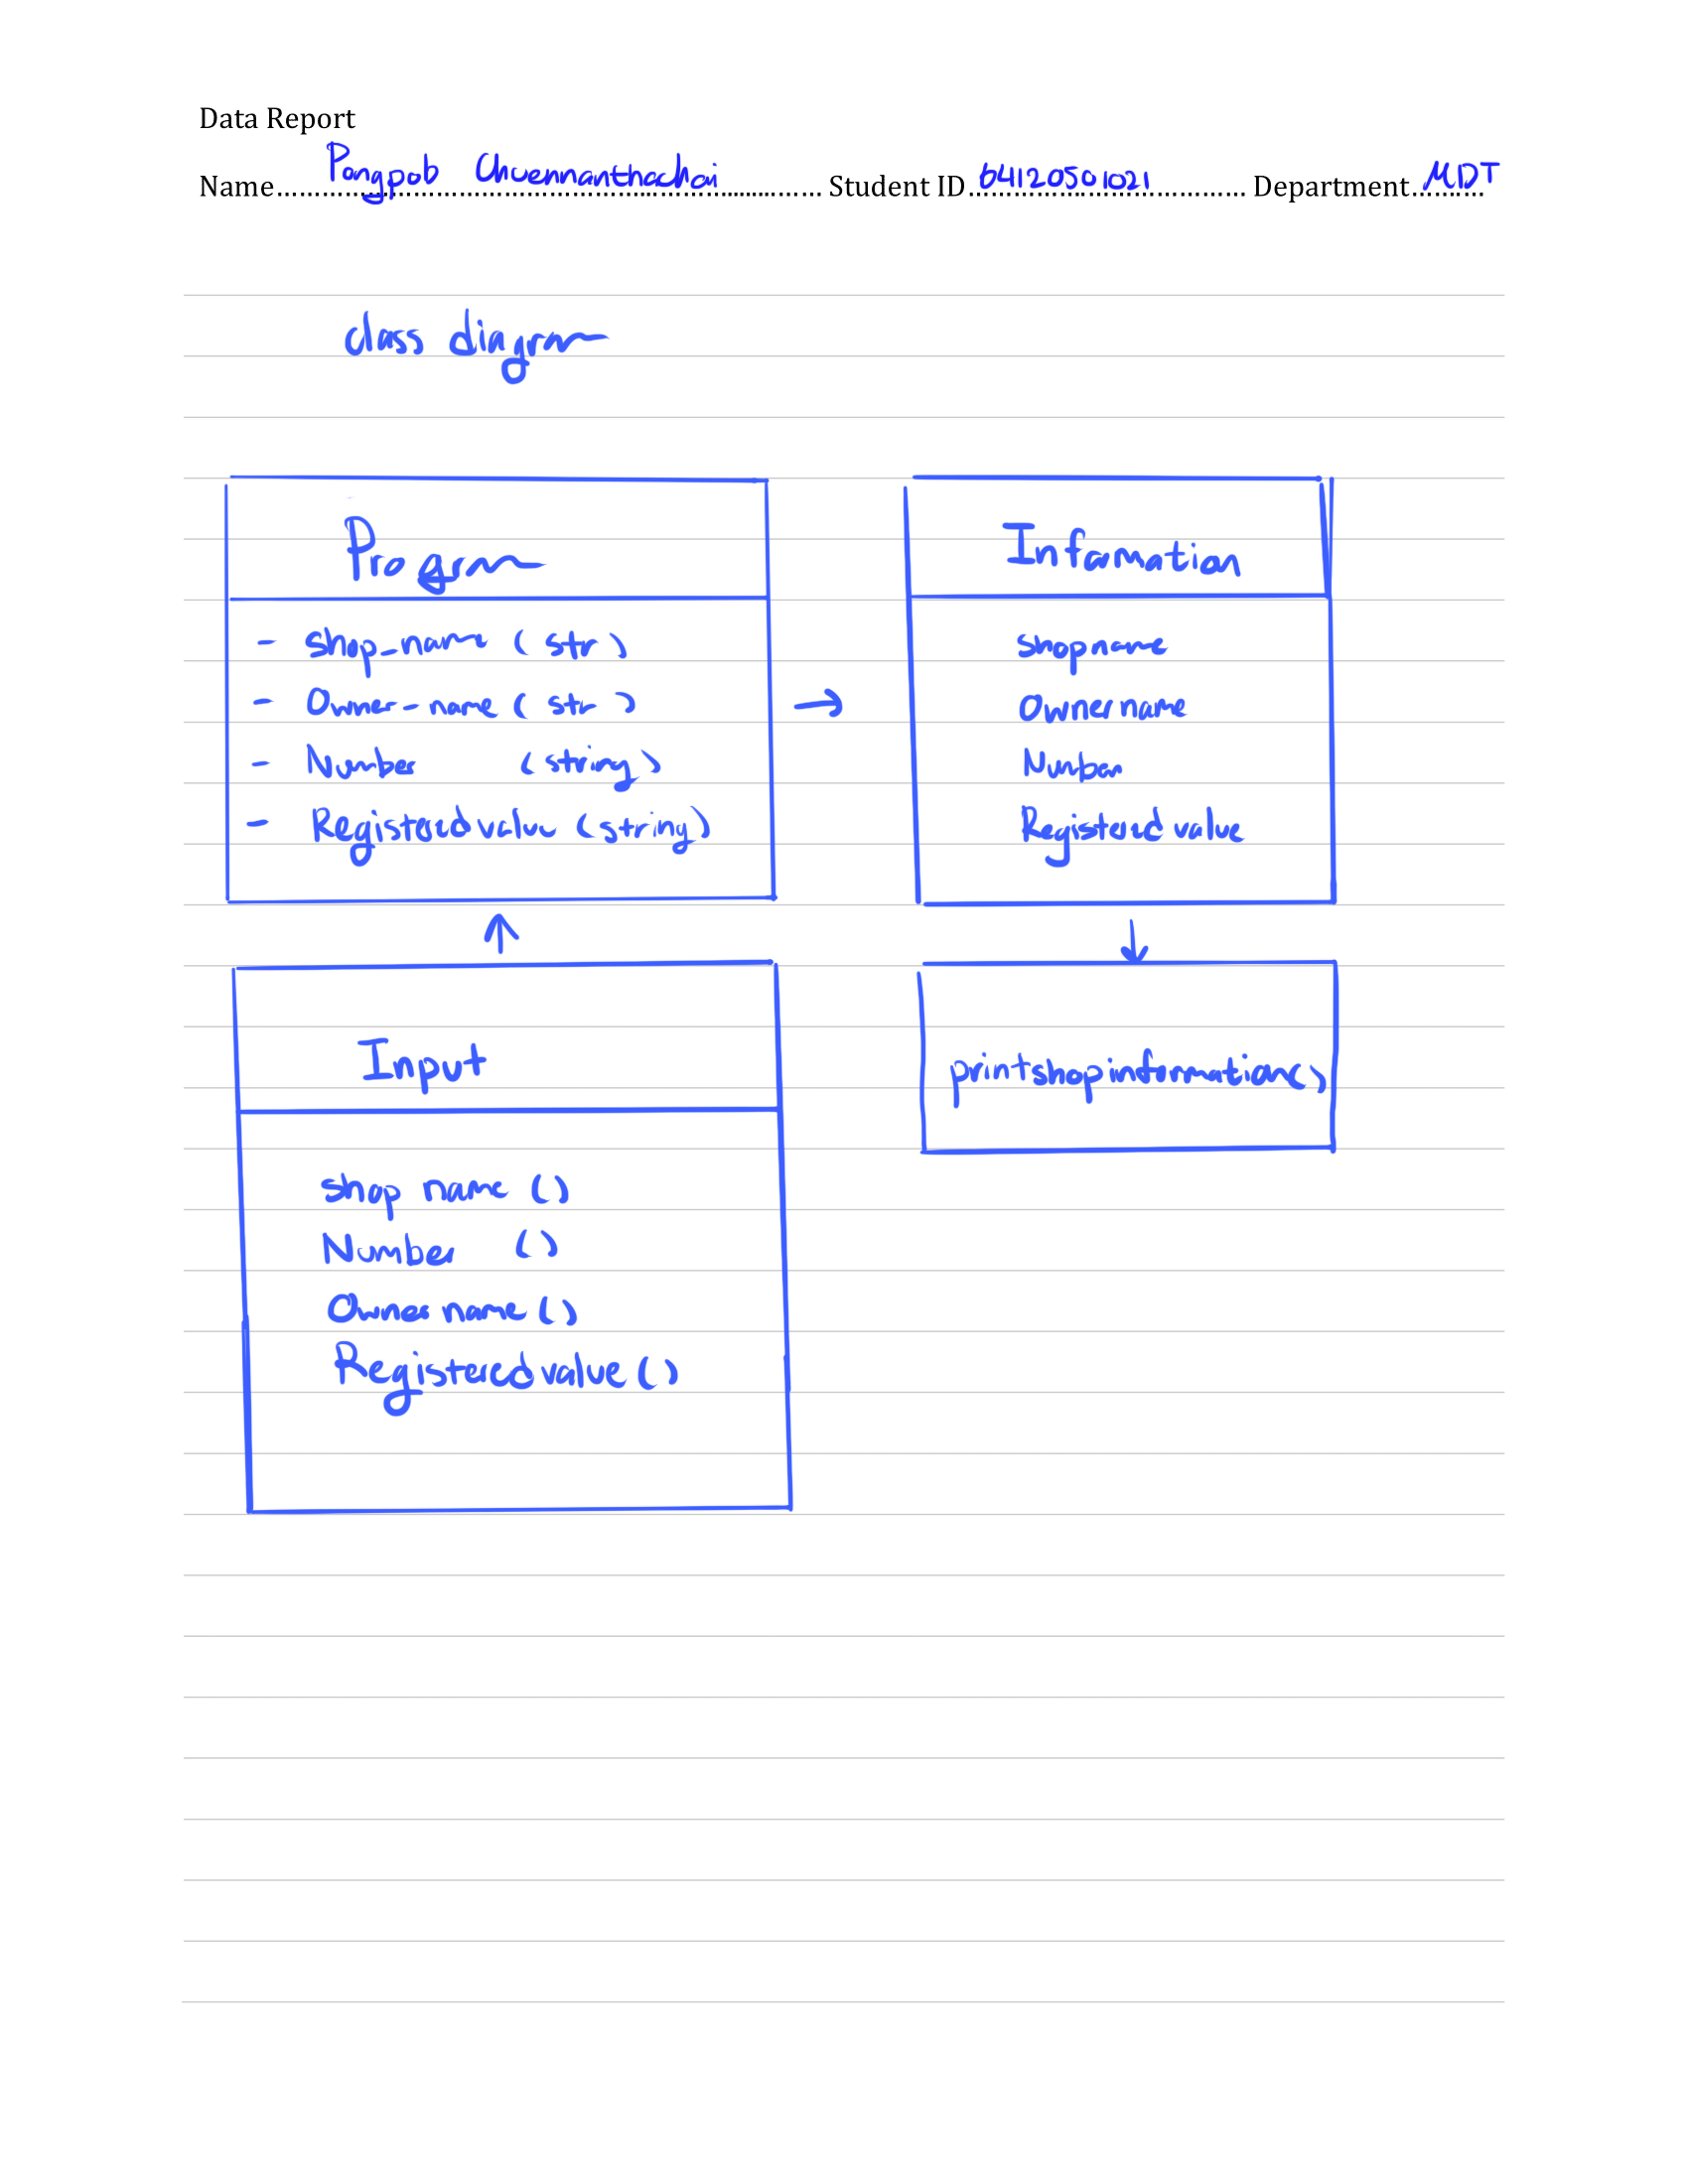 Data Report
Name Pongpob Chuennanthachai Student ID 64120501021 Department MDT
class diagram
Program
- shop_name (str)
- Owner-name (str)
- Number (string)
- Registered value (string)
Information
shopname
Ownername
Number
Registered value
Input
shop name ()
Number ()
Owner name ()
Registered value ()
printshopinformation()